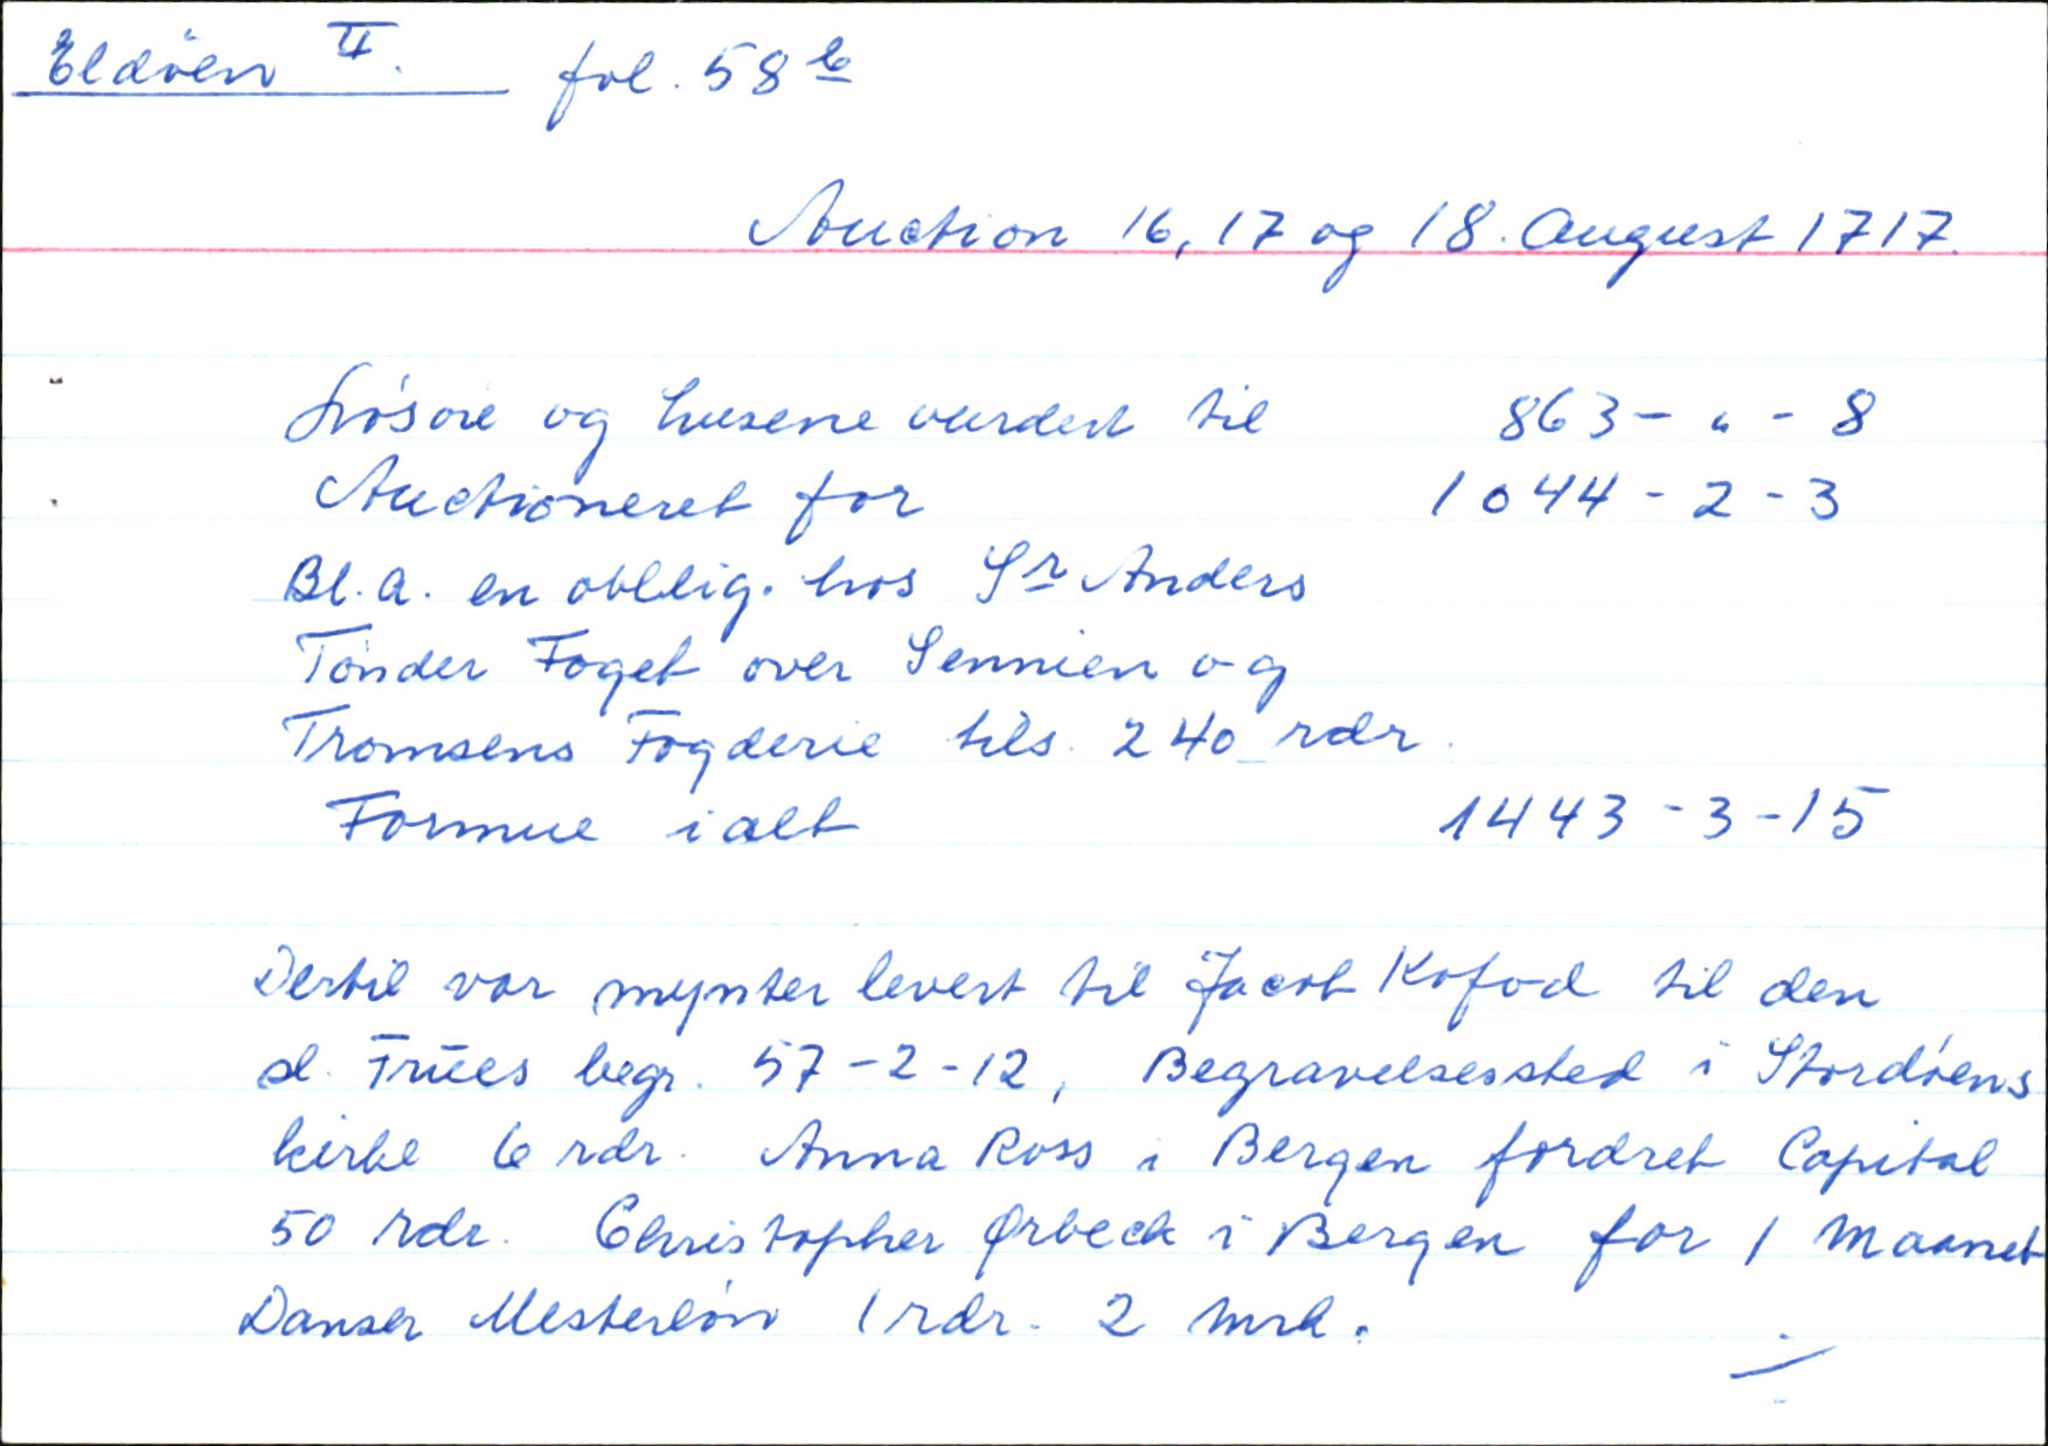 Eldöen II. fol. 58 b
Auction 16, 17 og 18. August 1717.
Lösöre og husene vurdert til 863 - " - 8
Auctioneret for 1044 - 2 - 3
Bl. a. en obblig. hos Sr Anders
Tönder Foget over Sennien og
Tromsens Fogderie tils. 240 rdr.
Formue ialt 1443 - 3 - 15
Dertil var mynter levert til Jacob Kofod til den
sl. Frues begr. 57 - 2 - 12, Begravelsessted i Stordöens
kirke 6 rdr. Anna Ross i Bergen fordret Capital
50 rdr. Christopher Ørbeck i Bergen for 1 Maanet
Danser Mesterlön 1 rdr. 2 mrk.